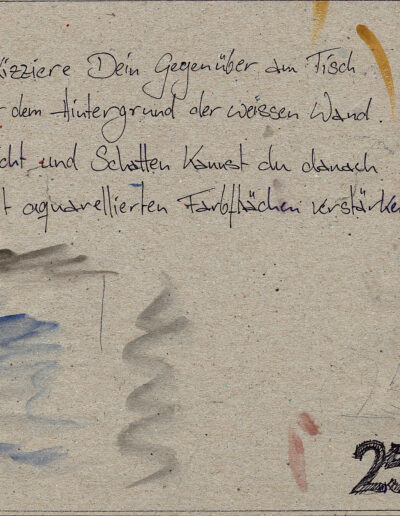 kizziere Dein Gegenüber am Tisch
r dem Hintergrund der weissen Wand.
cht und Schatten kannst du danach
t aquarellierten Farbflächen verstärken
25